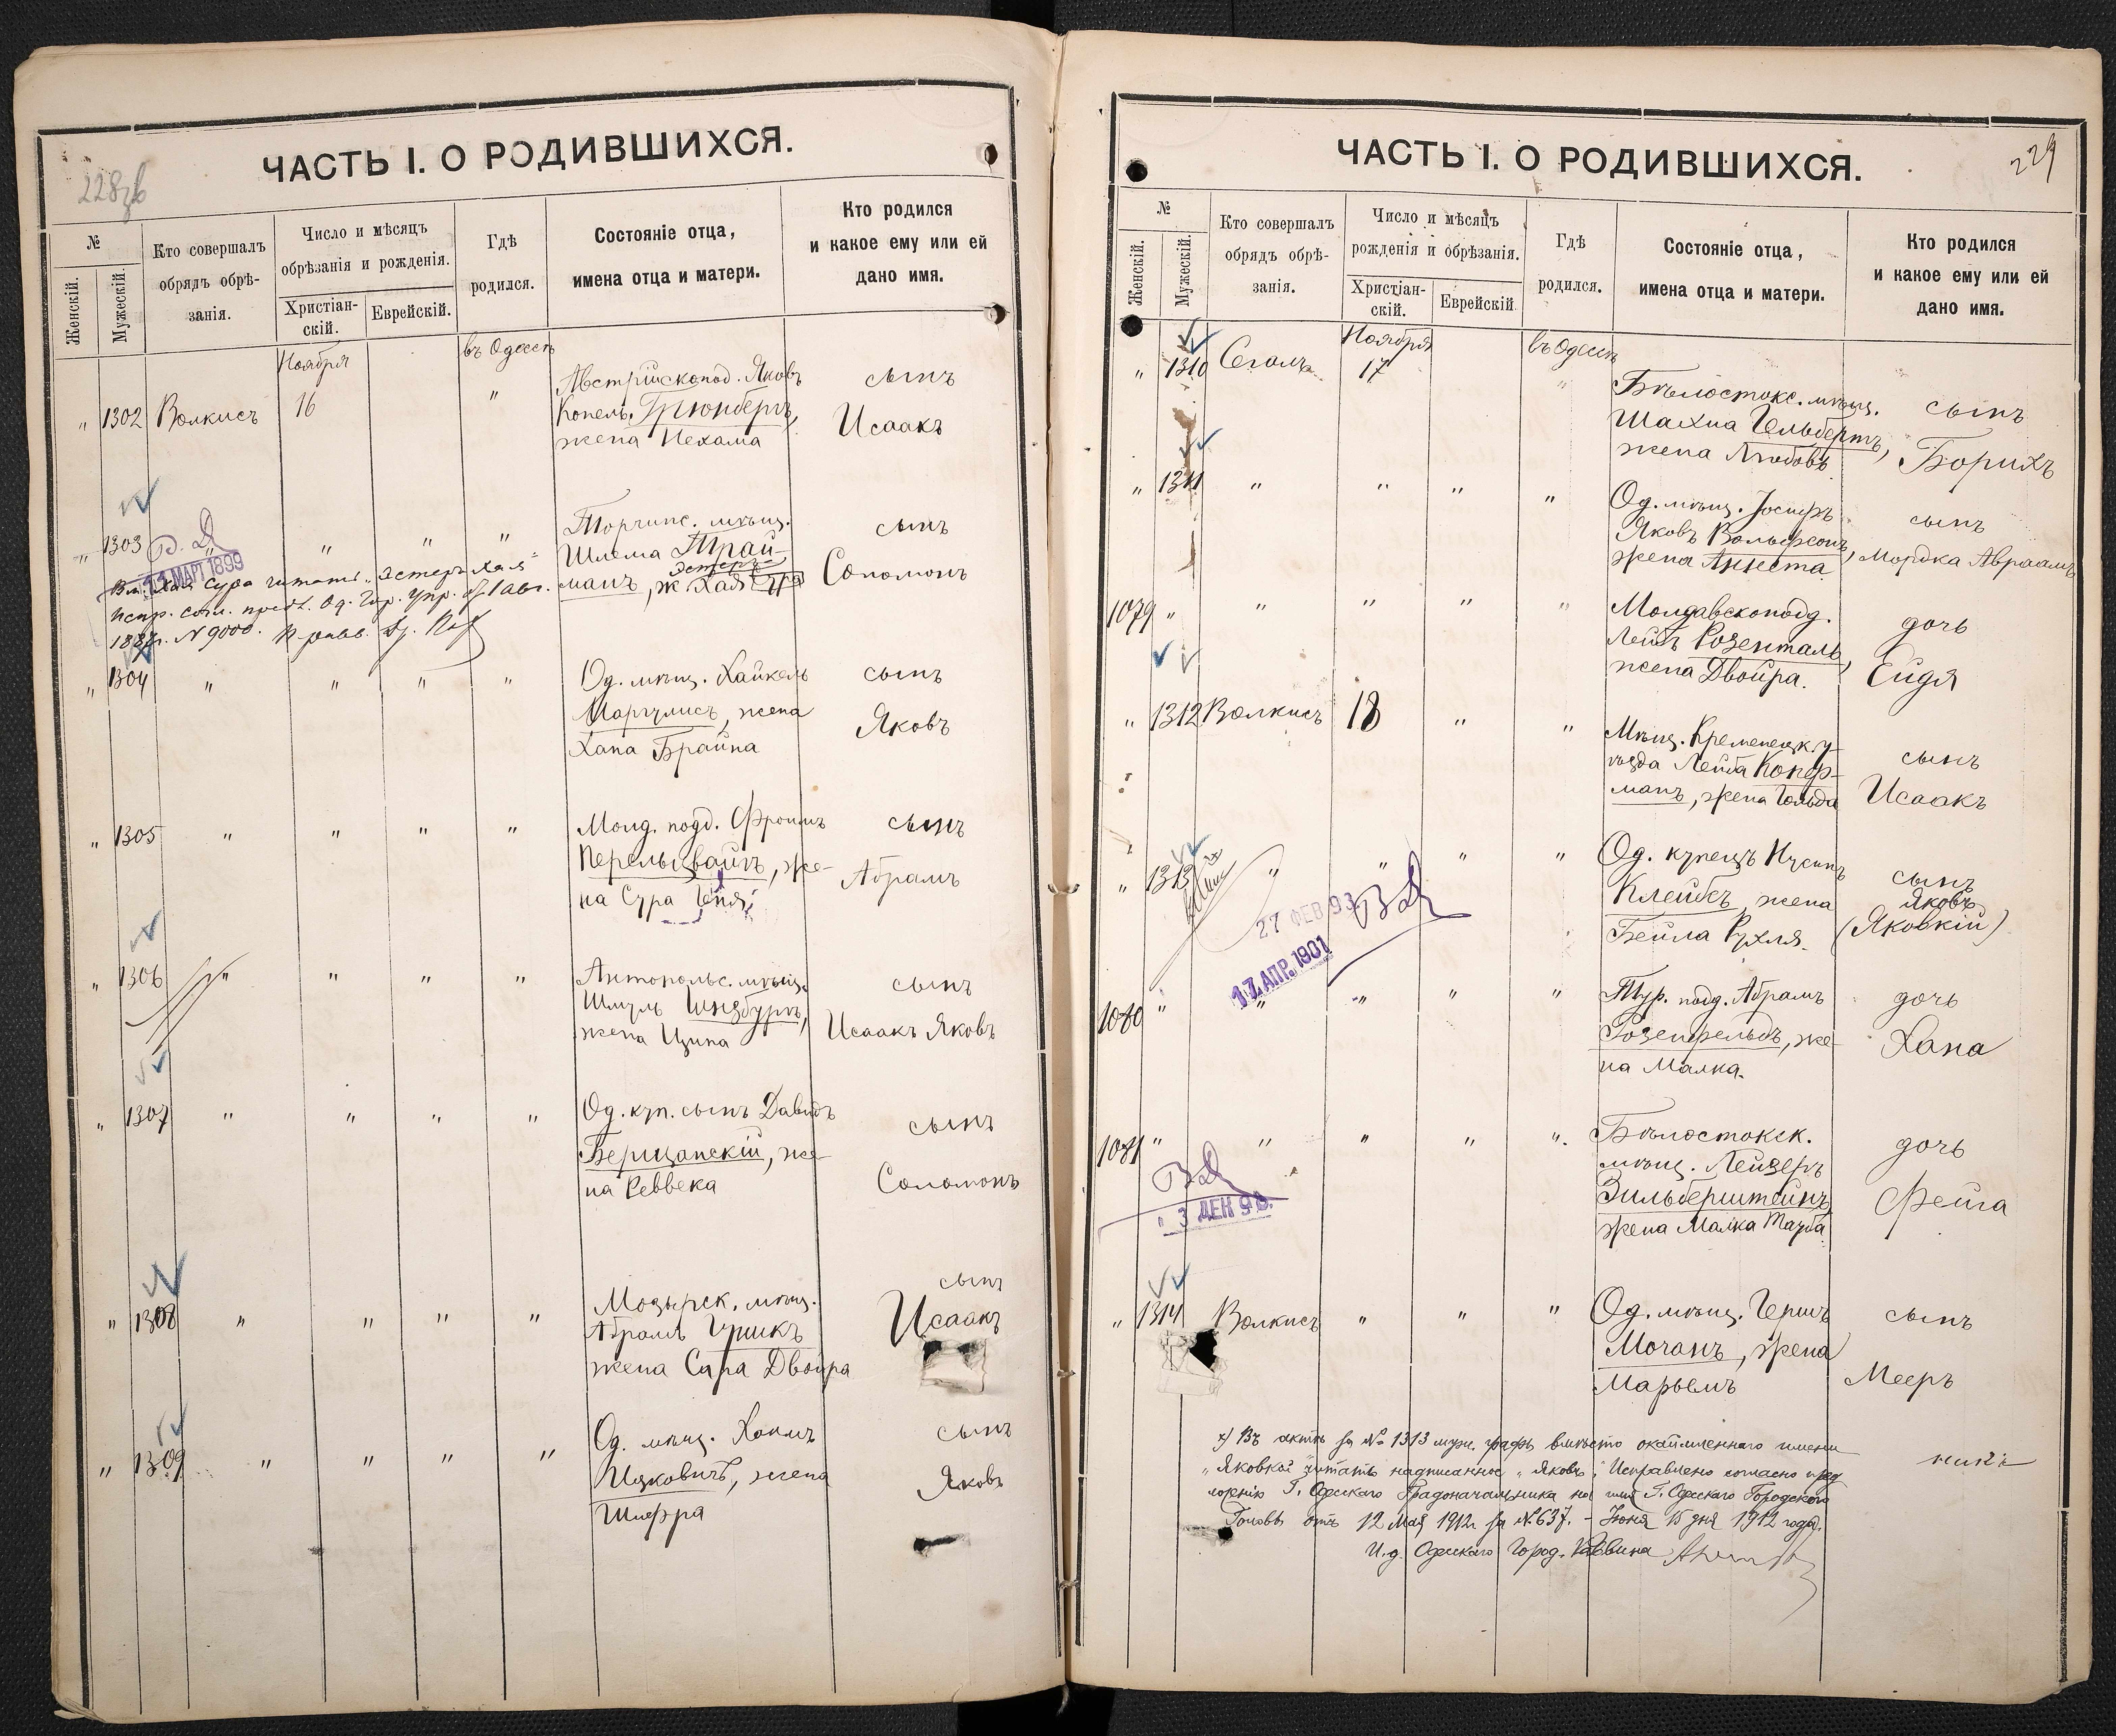 228зв
ЧАСТЬ I. О РОДИВШИХСЯ.
№
Женскій.
Мужескій.
Кто совершалъ
обрядъ обрѣ-
занія.
Число и мѣсяцъ
обрѣзанія и рожденія.
Христіан-
скій.
Еврейскій.
Гдѣ
родился.
Состояніе отца,
имена отца и матери.
Кто родился
и какое ему или ей
дано имя.
Ноября
въ Одессѣ
" 1302 Волкисъ 16 "
Австрійскопод. Яковъ
Копель Грюнбергъ,
жена Нехама
сынъ
Исаакъ
" 1303 " " " "
Торчинс. мѣщ.
Шлема Трай-
Эстеръ
манъ, ж. Хая Сура
сынъ
Соломонъ
В. Д
11 МАРТ 1899
Вм. Хая Сура читать „Эстеръ Хая"
испр. согл. предл. Од. Гор. Упр. от 1 авг.
1887г. N 9000.
" 1304 " " " "
Од. мѣщ. Хайкель
Маргулисъ, жена
Хана Брайна
сынъ
Яковъ
" 1305 " " " "
Молд. подд. Фроимъ
Перельцвайгъ, же-
на Сура Геня
сынъ
Абрамъ
" 1306 " " " "
Антопольс. мѣщ.
Шмуль Гинзбургъ,
жена Ципа
сынъ
Исаакъ Яковъ
" 1307 " " " "
Од. куп. сынъ Давидъ
Берщанскій, же-
на Реввека
сынъ
Соломонъ
" 1308 " " " "
Мозырск. мѣщ.
Абрамъ Гушкъ
жена Сура Двойра
сынъ
Исаакъ
" 1309 " " " "
Од. мѣщ. Хаимъ
Ицковичъ, жена
Шифра
сынъ
Яковъ
229
ЧАСТЬ I. О РОДИВШИХСЯ.
№
Женскій.
Мужескій.
Кто совершалъ
обрядъ обрѣ-
занія.
Число и мѣсяцъ
рожденія и обрѣзанія.
Христіан-
скій.
Еврейскій.
Гдѣ
родился.
Состояніе отца,
имена отца и матери.
Кто родился
и какое ему или ей
дано имя.
Ноября
въ Одессѣ
" 1310 Сегалъ 17 "
Бѣлостокс. мѣщ.
Шахна Гельбертъ,
жена Любовь
сынъ
Борихъ
" 1311 " " " "
Од. мѣщ. Іосифъ
Яковъ Вольфсонъ,
жена Аннета
сынъ
Мордка Авраамъ
1079 " " " " "
Молдавскоподд.
Лейбъ Розенталь,
жена Двойра.
дочь
Ейдя
" 1312 Волкисъ 18 " "
Мѣщ. Кременецк. у-
ѣзда Лейба Копер-
манъ, жена Гольда
сынъ
Исаакъ
" 1313 " " " "
Од. купецъ Нусинъ
Клейбъ, жена
Бейла Рухля.
сынъ
Яковъ
(Яковкій)
27 ФЕВ 93
В Д
17 АПР. 1901
1080 " " " " "
Тур. подд. Абрамъ
Розенфельдъ, же-
на Малка.
дочь
Хана
1081 " " " " "
Бѣлостокск.
мѣщ. Лейзеръ
Зильберштейнъ,
жена Малка Тауба
дочь
Фейга
В Д
3 ДЕК 98.
" 1314 Волкисъ " " "
Од. мѣщ. Гершъ
Мочанъ, жена
Марьемъ
сынъ
Мееръ
х) Въ актѣ за № 1313 муж. графы вмѣсто окаймленнаго имени
„Яковкій" читать надписанное „Яковъ". Исправлено согласно пред-
ложенію Г. Одесскаго Градоначальника на имя Г. Одесскаго Городского
Головы отъ 12 Мая 1912г за № 637. - Іюня 15 дня 1912 года.
И. д. Одесскаго Город. Раввина